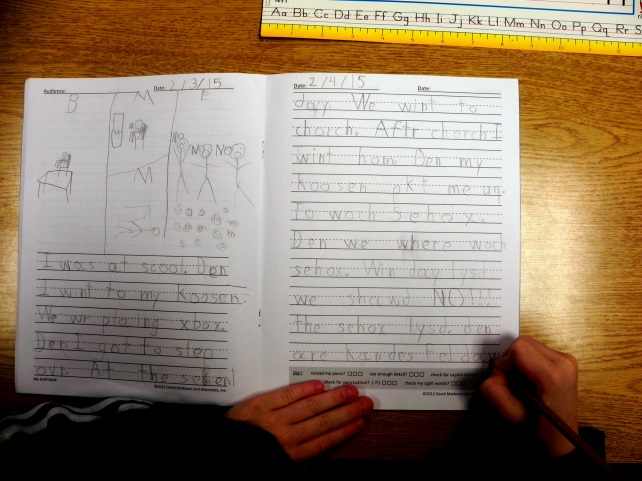 Aa Bb Cc Dd Ee Ff Gg Hh Ii Jj Kk Ll Mm Nn Oo Pp Qq Rr S
Audience:
Date: 2/3/15
B M E
M
NO NO NO
I was at scool. Den
I wnt to my Koosen.
We wr plaing xbox.
Den I got to slep
ovr. At the
My Draft Book
©2012 David Matteson and Associates, Inc.
Date: 2/4/15
Date:
day. We wint to
chorch. Aftr chorch I
wint hom. Den my
Koosen akt me
to woch Sehox.
Den we where woch
sehox. Win day lysd
we showd NO!!!
the sehox lysd. den
are Kandes fel
Did I reread my piece? use enough detail? check for capital
check for punctuation? (.?!) check my sight words?
©2012 David Matteson and Associates, Inc.